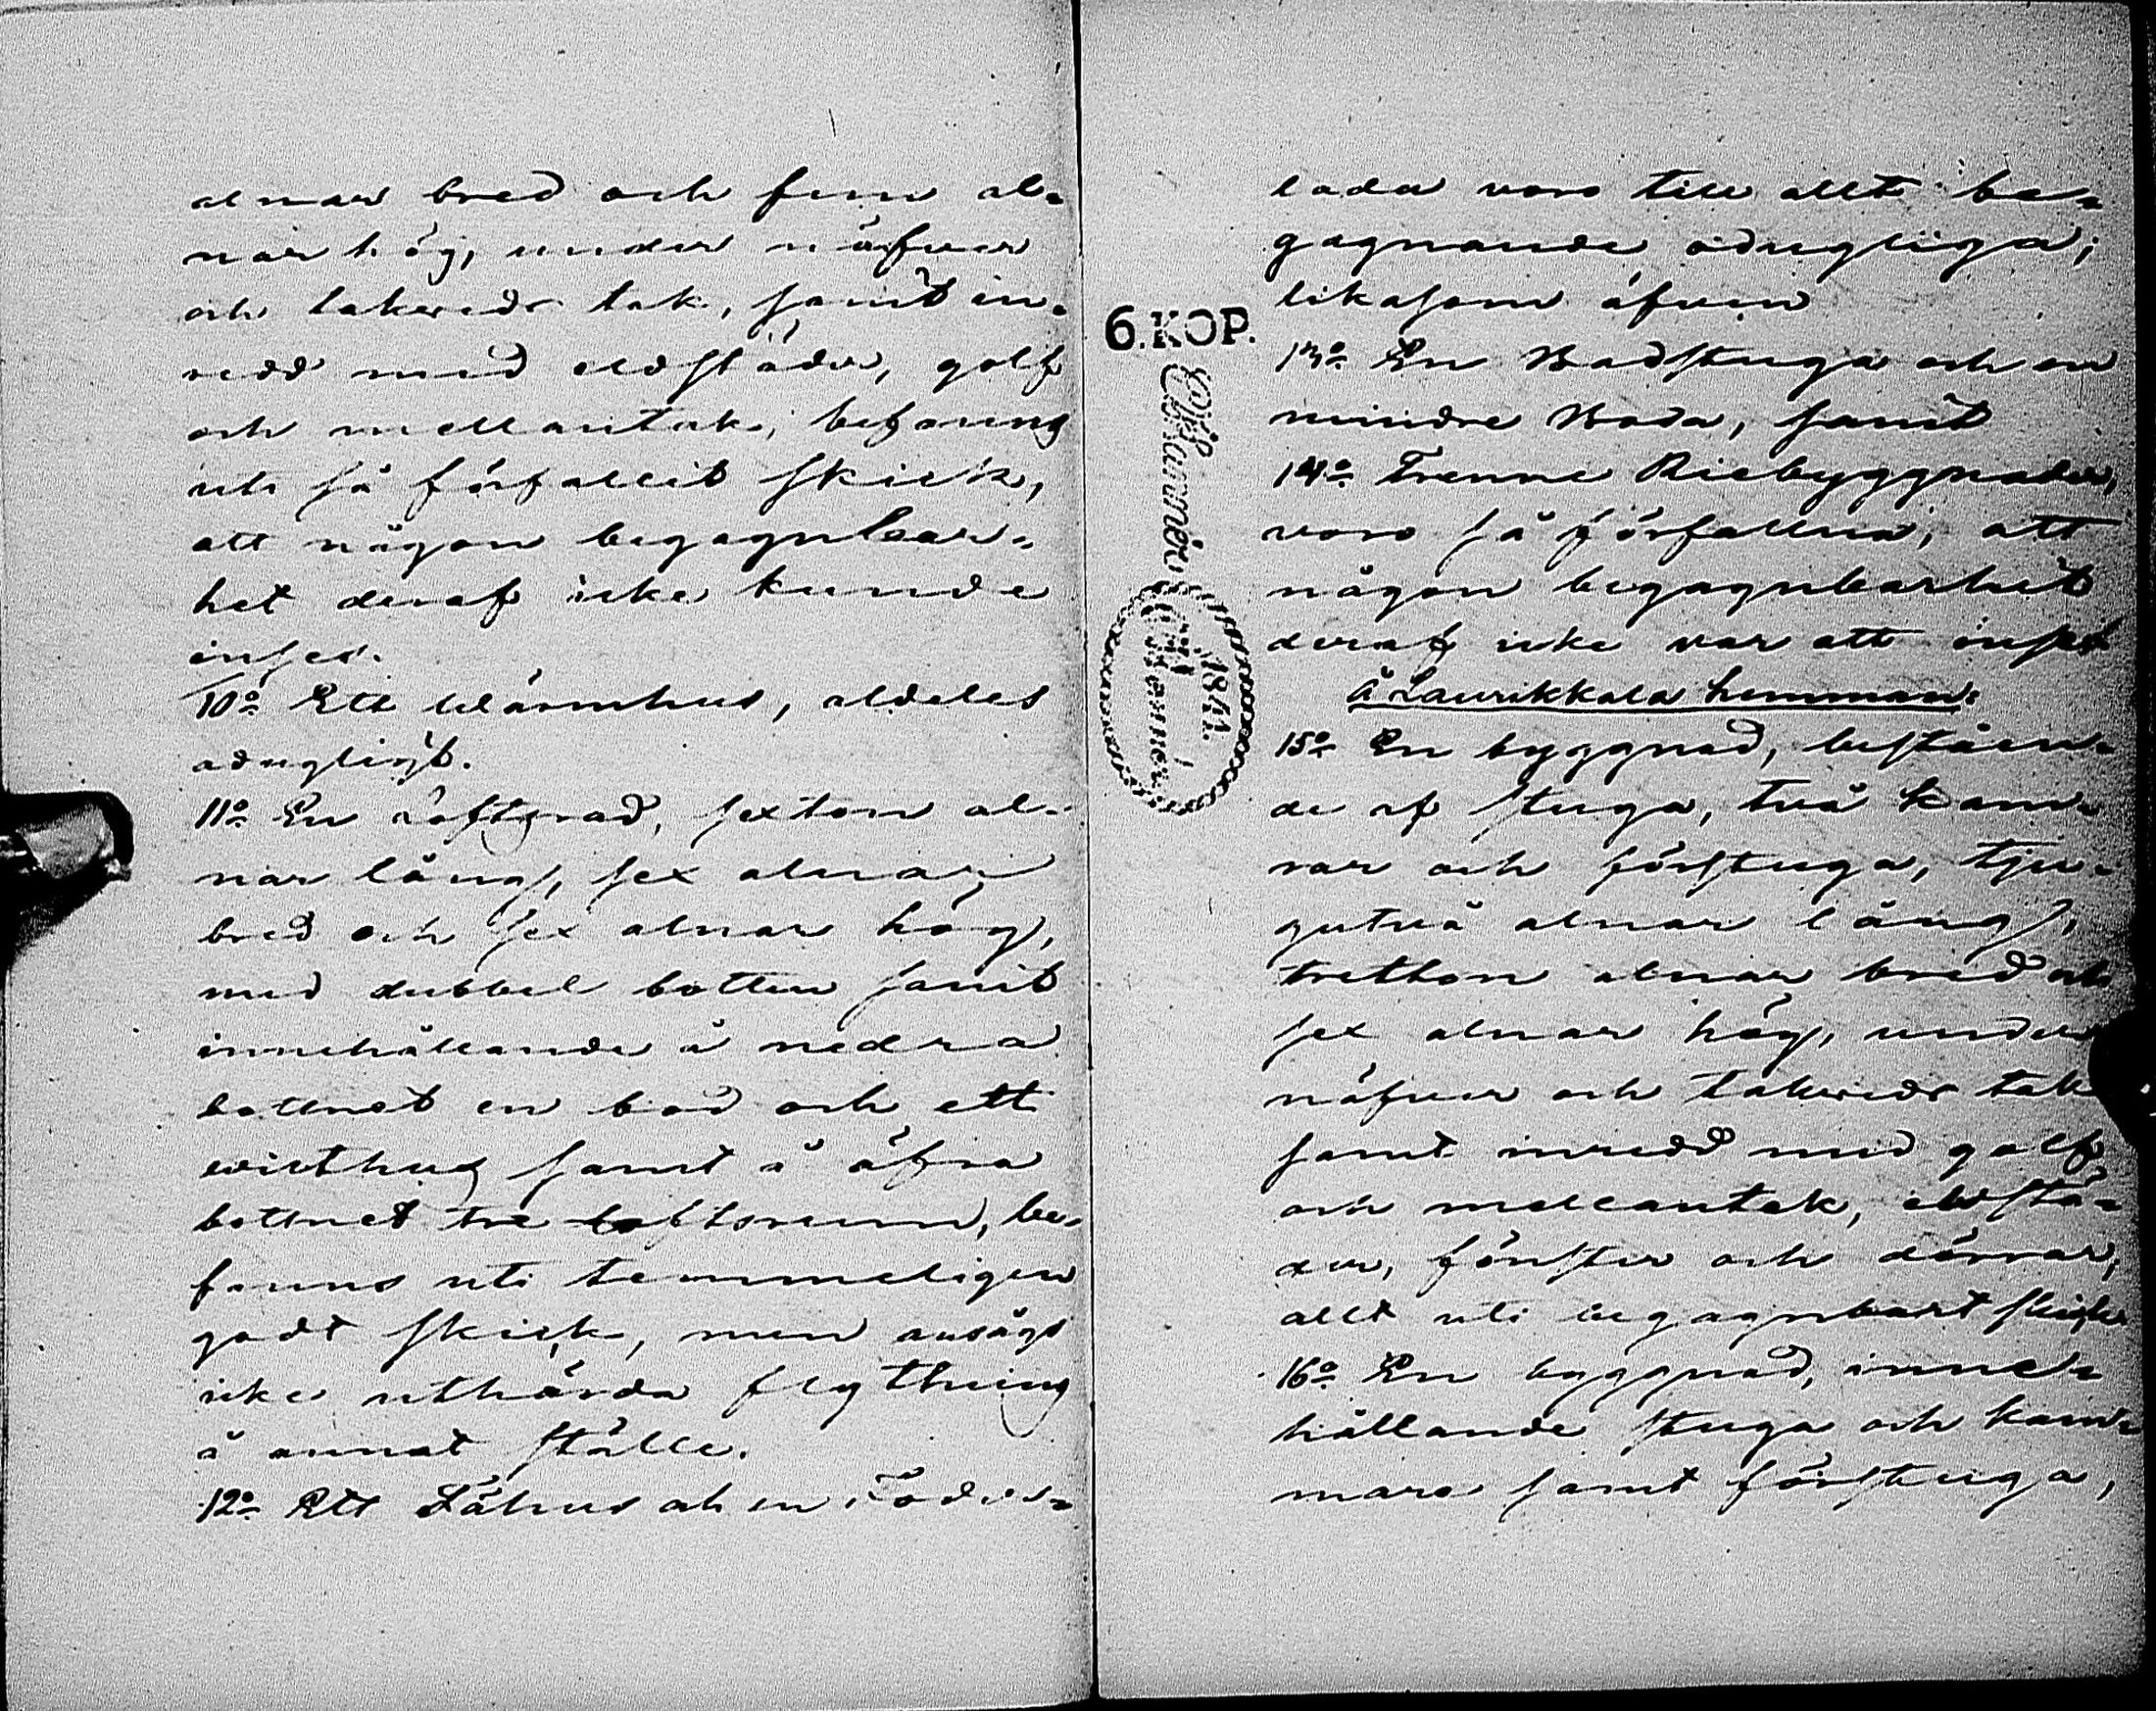 alnar bred och fem al-
nar hög, under näfver
och takveds tak, samt in-
redd med eldstäder, golf
och mellantak, befanns
uti så förfallit skick,
att någon begagnbar-
het deraf icke kunde
inses.
10o Ett Wärmhus, aldeles
odugligt.
11o En Loftsrad, sexton al-
nar lång, sex alnar
bred och sex alnar hög,
med dubbel botten samt
innehållande å nedra
bottnet en bod och ett
samt å öfra
bottnet tre loftsrum, be-
fanns uti temmeligen
godt skick, men ansågs
icke uthärda flyttning
å annat ställe.
12o Ett Fähus och en Foder-
lada voro till allt be-
gagnande odugliga;
likasom äfven
13o En Badstuga och en
mindre Boda, samt
14o Trenne Riebyggnader,
voro så förfallna, att
någon begagnbarhet
deraf icke var att inse
å Laurikkala hemman:
15o En byggnad, beståen-
de af stuga, två kam-
rar och förstuga, tju-
gutvå alnar lång,
tretton alnar bred och
sex alnar hög, under
näfver och takveds tak
samt inredd med golf
och mellantak, eldstä-
der, fönster och dörrar,
allt uti begagnbart skick
16o En byggnad, inne-
hållande stuga och kam-
mare samt förstuga,
6.KOP.
1841.